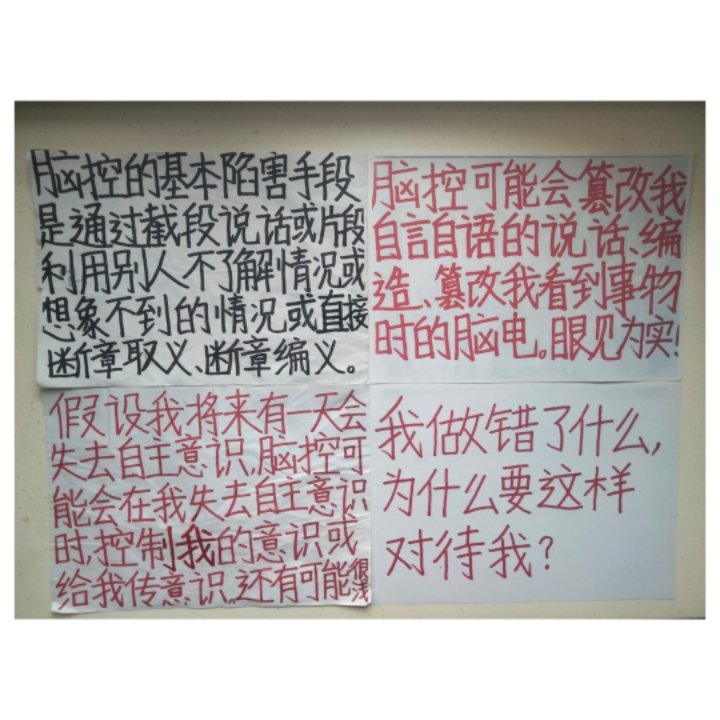 脑控的基本陷害手段
是通过截段说话或片段
利用别人不了解情况或
想象不到的情况或直接
断章取义、断章编义。
脑控可能会篡改我
自言自语的说话、编
造、篡改我看到事物
时的脑电。眼见为实!
假设我将来有一天会
失去自主意识,脑控可
能会在我失去自主意识
时,控制我的意识或
给我传意识。还有可能很浅
我做错了什么,
为什么要这样
对待我?